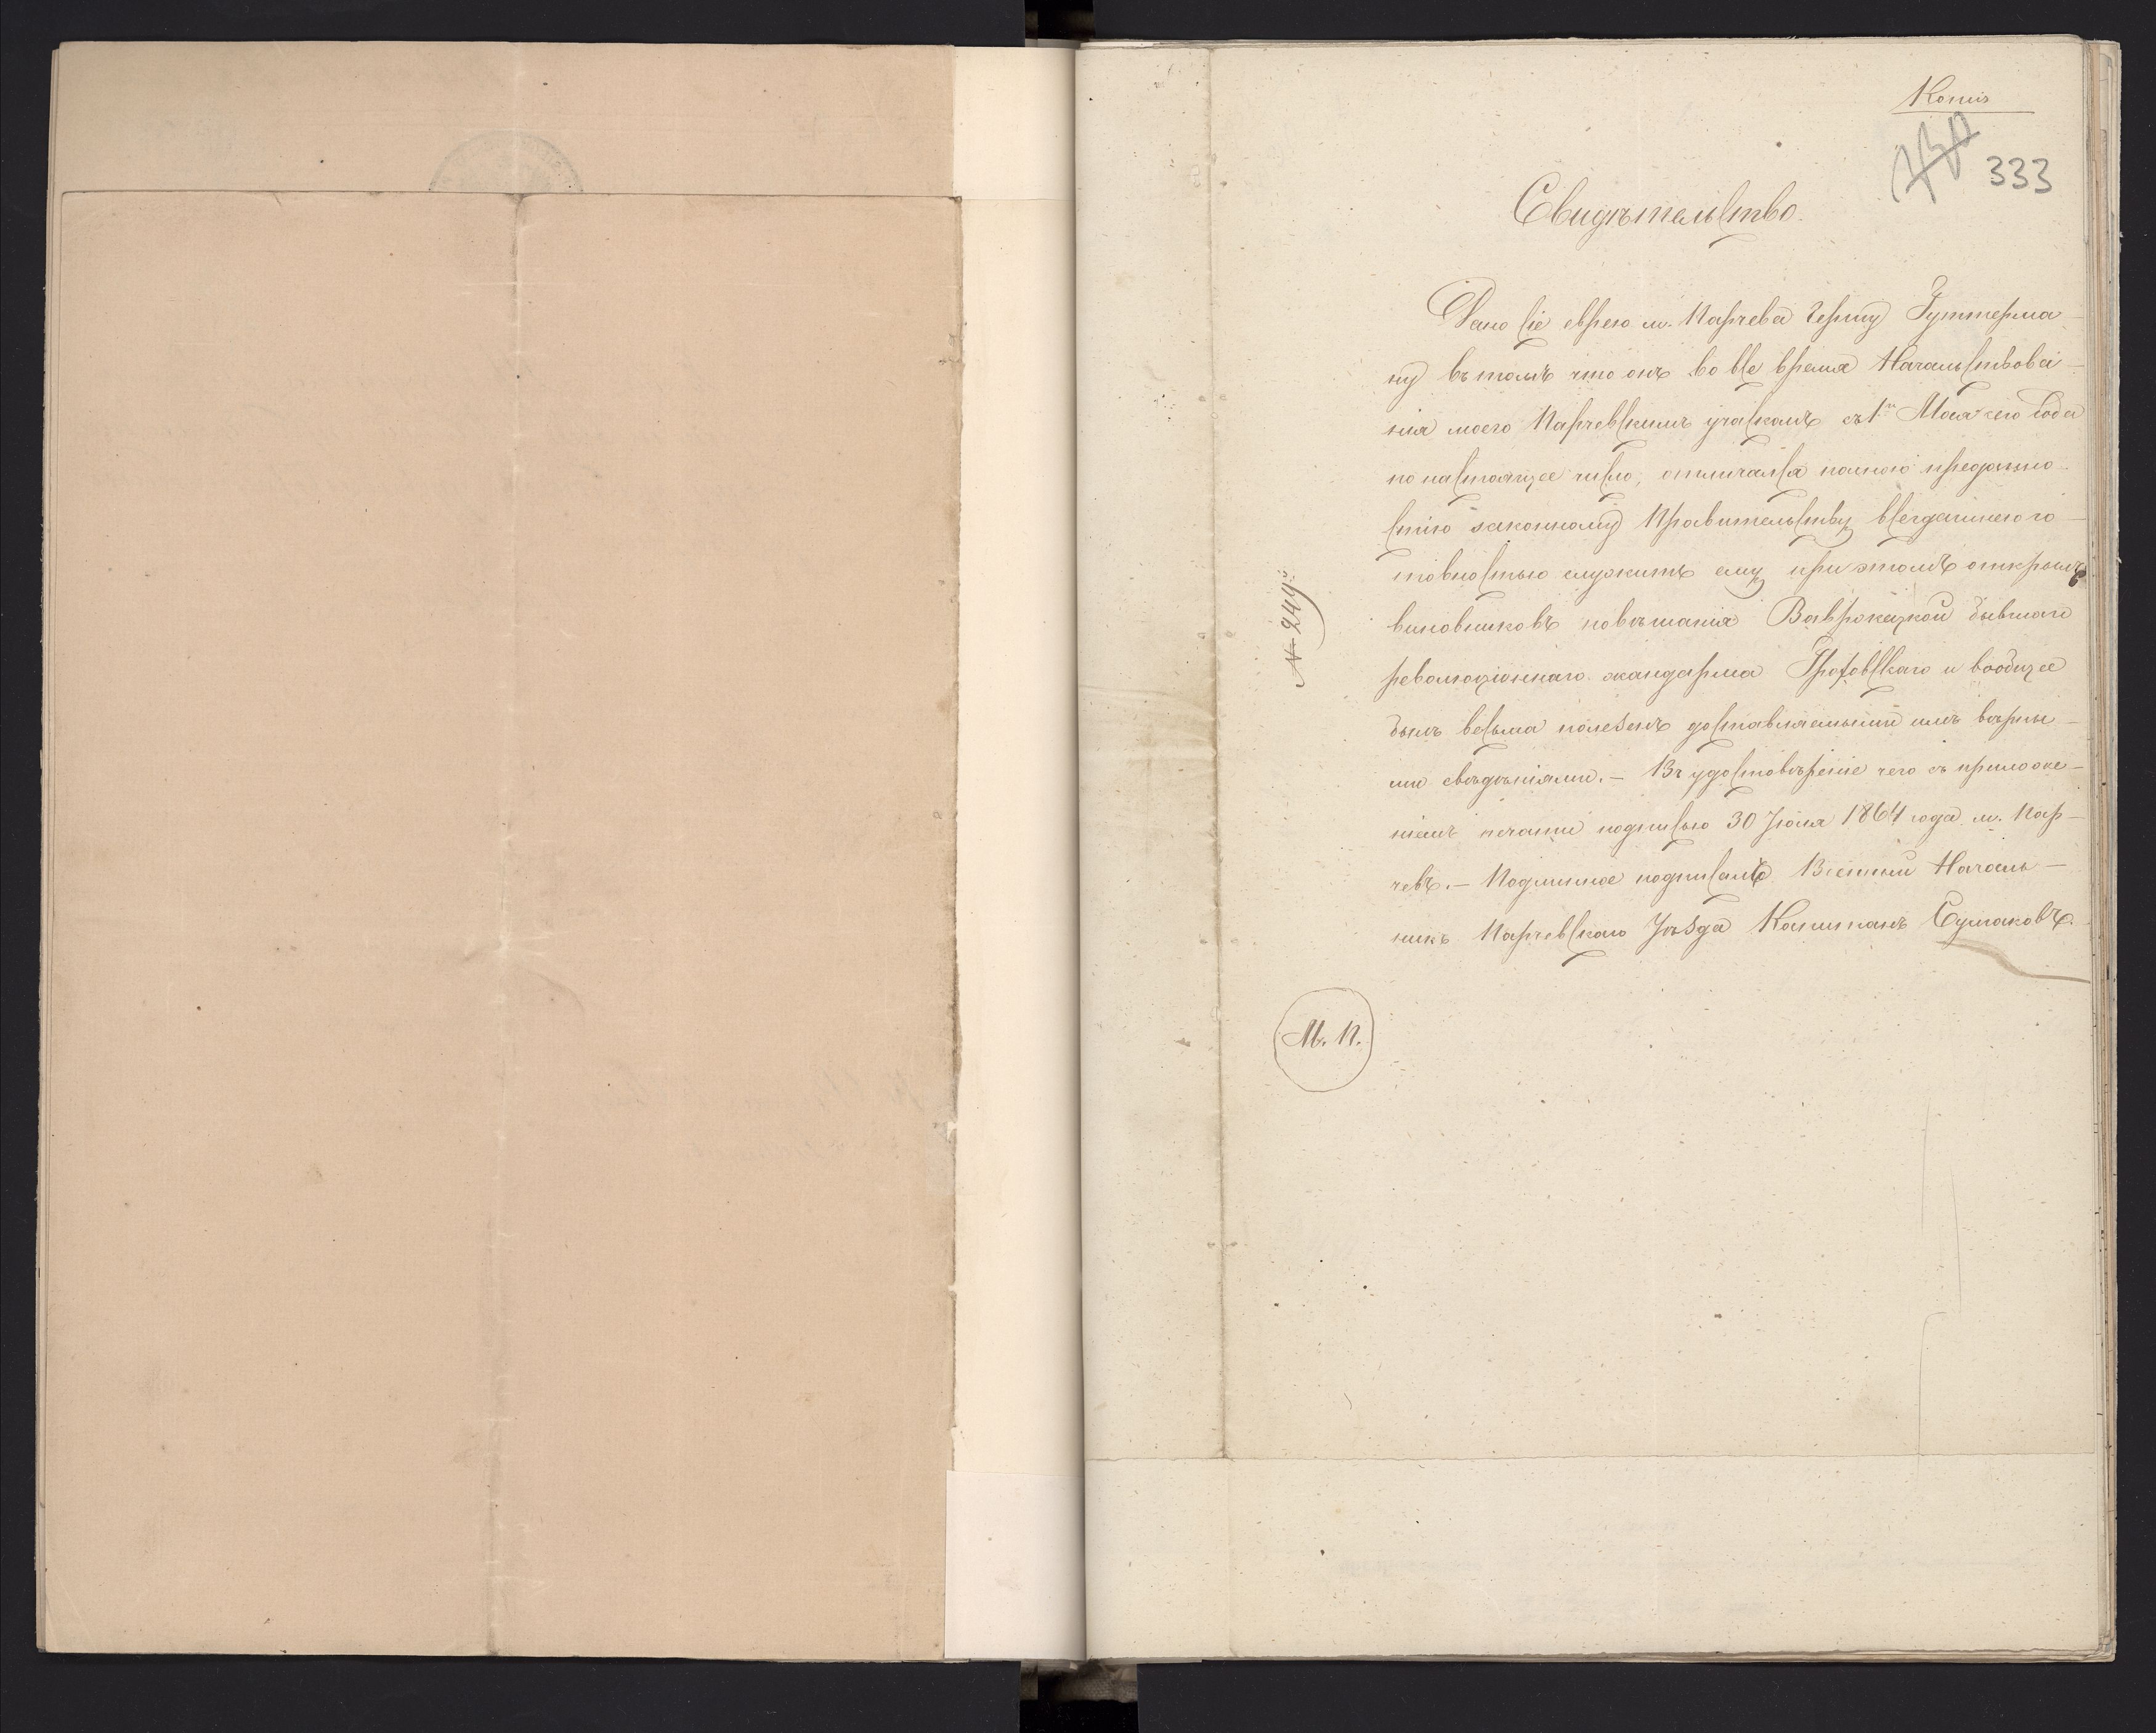 Копія
333
Свидѣтельство.
Дано сіе еврею м. Парчева Гершу Гуттерма-
ну въ томъ что онъ во все время Начальствова-
нія моего Парчевскимъ участкомъ съ 1го Мая сего года
по настоящее число, отличался полною преданно-
стію законному Правительству, всегдашнею го-
товностью служить ему, при этомъ открылъ
виновниковъ повѣшанія бывшаго
революціоннаго жандарма и вообще
былъ весьма полезенъ доставляемыми имъ вѣрны-
ми свѣдѣніями. – Въ удостовѣреніе чего съ приложе-
ніемъ печати подписью 30 Іюля 1864 года м. Пар-
чевъ. – Подлинное подписалъ Военный Началь-
никъ Парчевскаго Уѣзда Капитанъ
М. П.